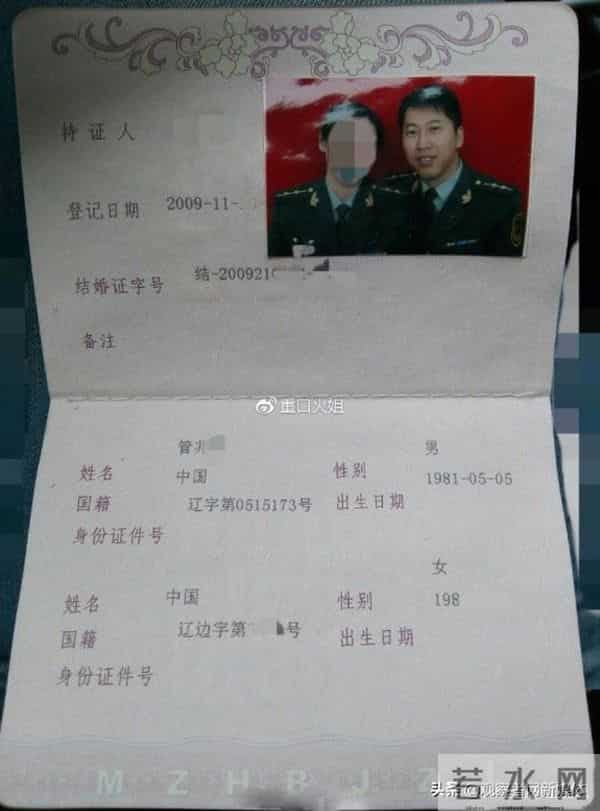 持证人
登记日期 2009-11-
结婚证字号 结-200921
备注
重口火姐
管兆 男
姓名 中国 性别 1981-05-05
国籍 辽字第0515173号 出生日期
身份证件号
女
姓名 中国 性别 198
国籍 辽边字第 号 出生日期
身份证件号
MZHBJZ
若水网
头条